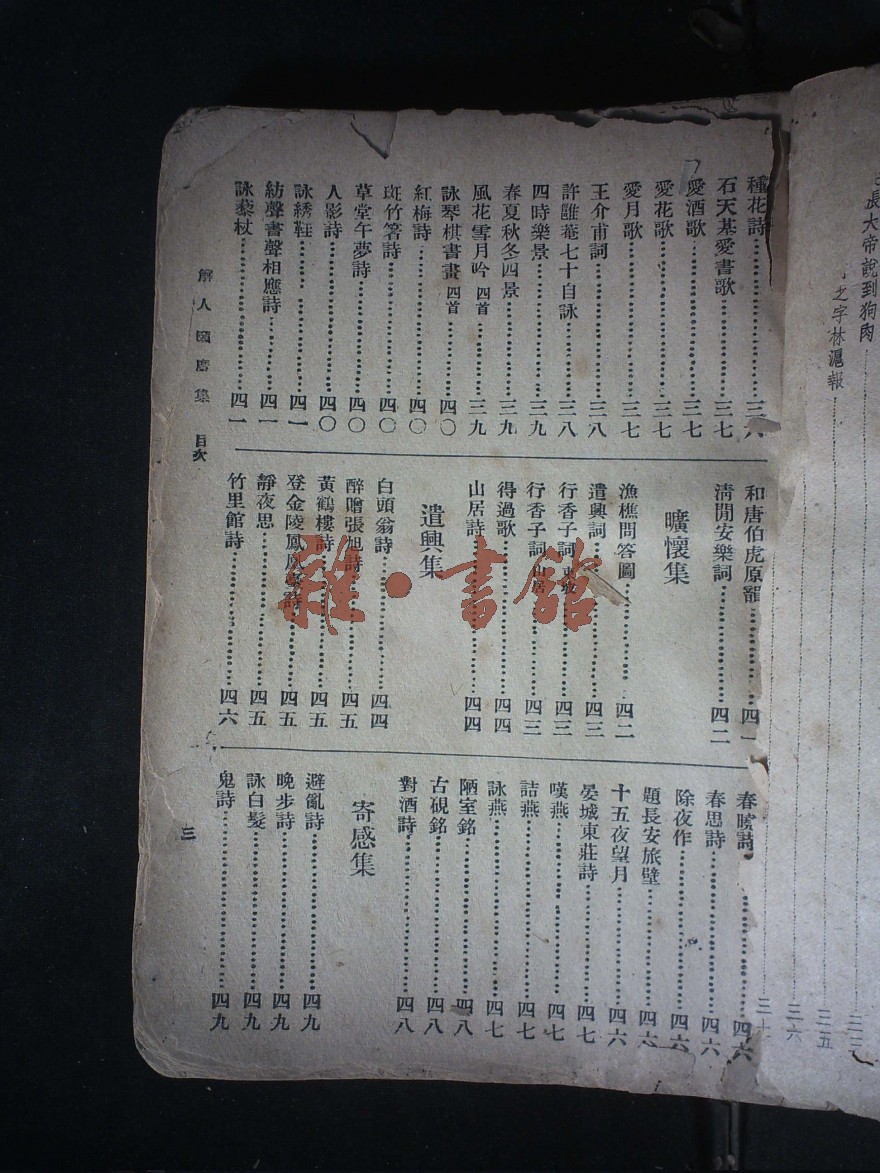 種花詩三六
石天基愛書歌三七
愛酒歌三七
愛花歌三七
愛月歌三七
王介甫詞三八
許雝菴七十自詠三八
四時樂景三九
春夏秋冬四景三九
風花雪月吟 四首三九
詠琴棋書畫 四首四〇
紅梅詩四〇
斑竹箸詩四〇
草堂午夢詩四〇
人影詩四〇
詠綉鞋四一
紡聲書聲相應詩四一
詠藜杖四一
和唐伯虎原韻四一
淸閒安樂詞四二
曠懷集
漁樵問答圖四二
遣興詞四三
行香子詞 東坡四三
行香子詞 山居四三
得過歌四四
山居詩四四
遣興集
白頭翁詩四四
醉贈張旭詩四五
黃鶴樓詩四五
登金陵鳳凰臺詩四五
靜夜思四五
竹里館詩四六
春曉詩四六
春思詩四六
除夜作四六
題長安旅壁四六
十五夜望月四六
晏城東莊詩四七
嘆燕四七
詰燕四七
詠燕四七
陋室銘四八
古硯銘四八
對酒詩四八
寄感集
避亂詩四九
晚步詩四九
詠白髮四九
鬼詩四九
解人頤廣集 目次
三
張大帝說到狗肉
之字林滬報
三五
三六
雜·書館